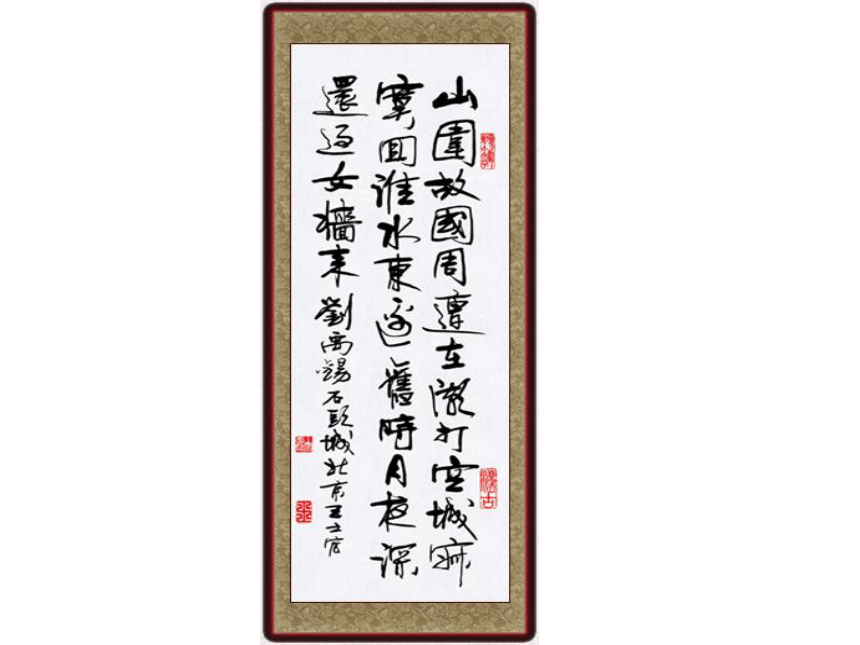 山圍故國周遭在潮打空城寂
寞回淮水東邊舊時月夜深
還過女牆來劉禹錫石頭城北京王